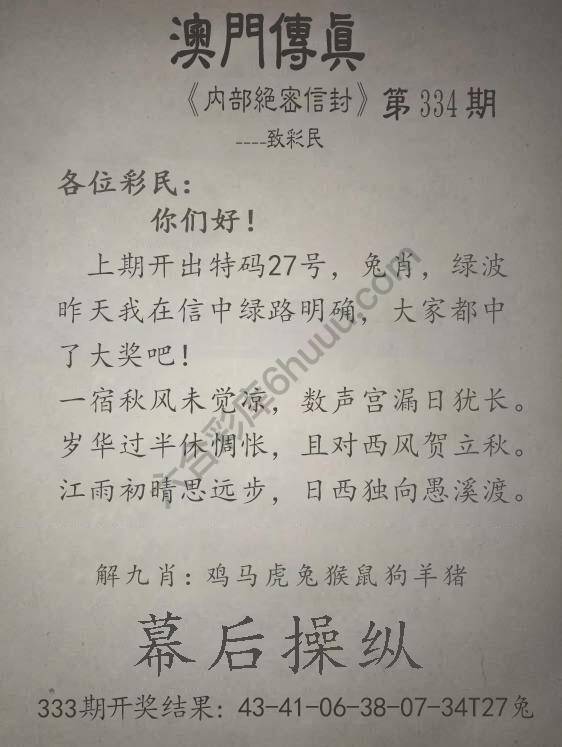 澳門傳眞
《内部絕密信封》第334期
----致彩民
各位彩民：
你们好！
上期开出特码27号，兔肖，绿波
昨天我在信中绿路明确，大家都中
了大奖吧！
一宿秋风未觉凉，数声宫漏日犹长。
岁华过半休惆怅，且对西风贺立秋。
江雨初晴思远步，日西独向愚溪渡。
解九肖：鸡马虎兔猴鼠狗羊猪
幕后操纵
333期开奖结果：43-41-06-38-07-34T27兔
六合彩库6huuu.com